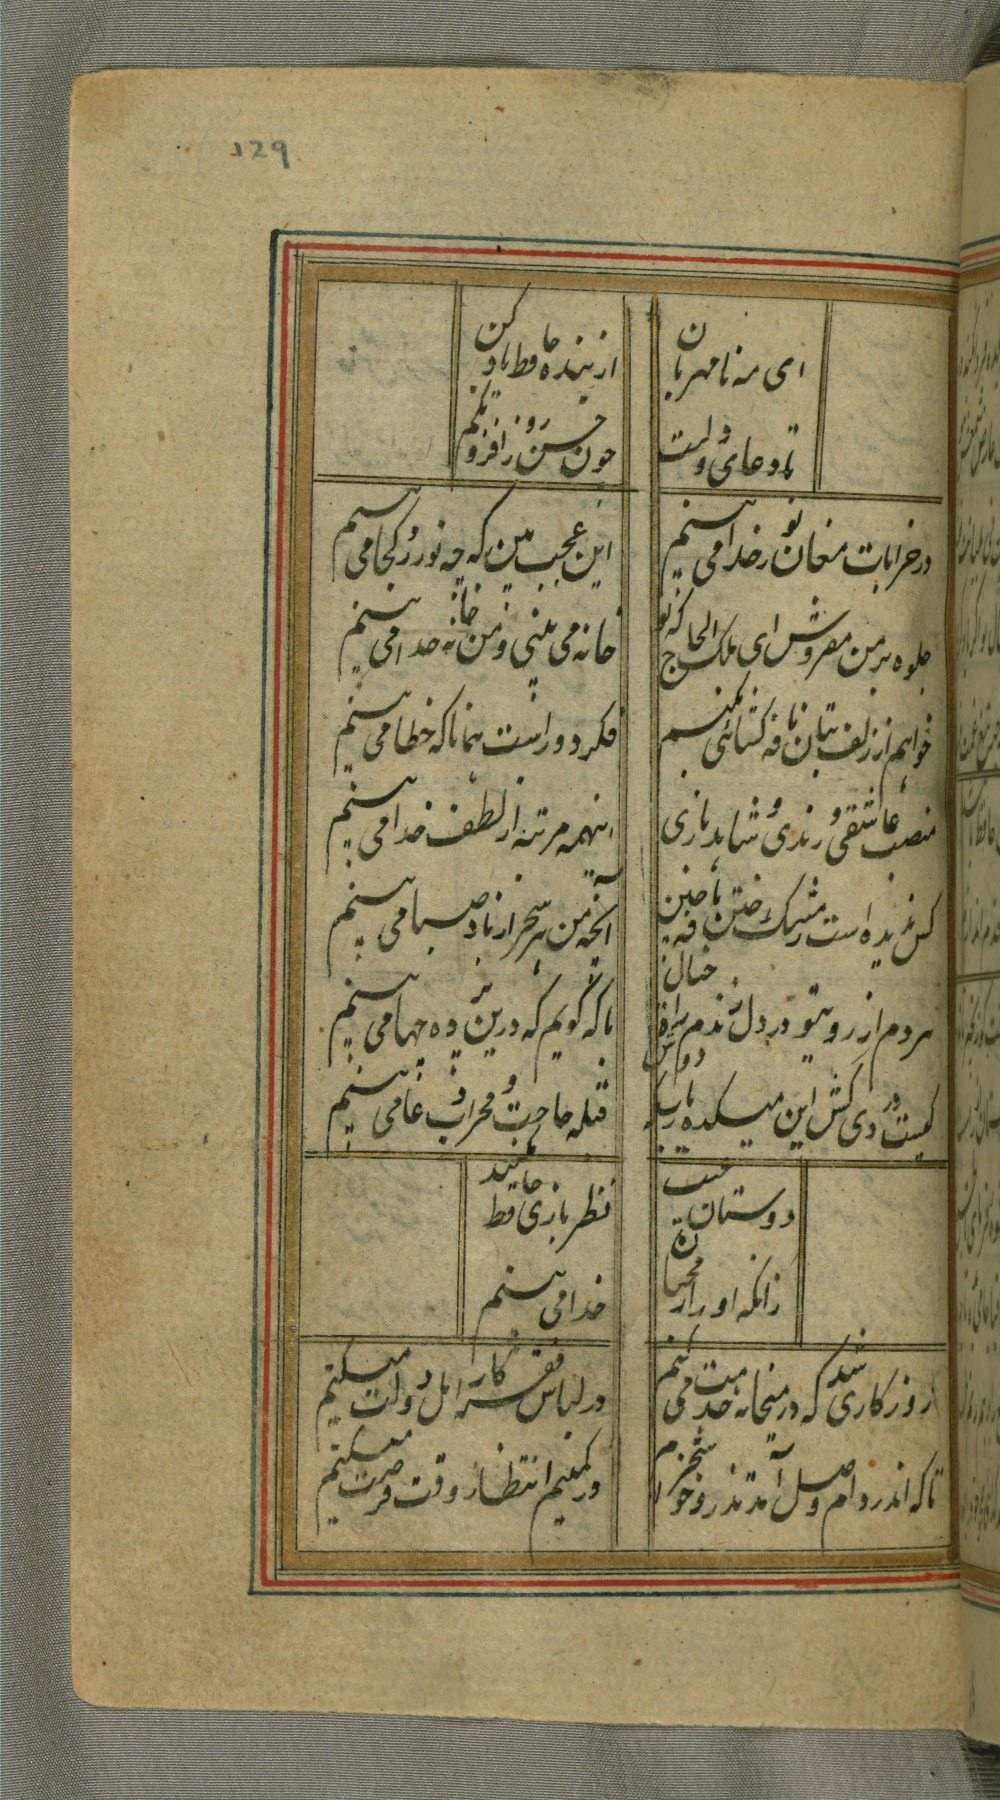 129
ای مه نامهربان از بنده حافظ یاد کن
تا دعای دولت حسن روز افزون کنم
در خرابات مغان نور خدا می بینم این عجب بین که چه نور ز کجا می بینم
جلوه بر من مفروش ای ملک الحاج که تو خانه می بینی و من خانه خدا می بینم
خواهم از زلف بتان نافه گشائی بکنم فکر دور است همانا که خطا می بینم
منصب عاشقی و رندی و شاهد بازی اینهمه مرتبه از لطف خدا می بینم
کس ندیده است ز مشک ختن نافه چین آنچه من هر سحر از باد صبا می بینم
هر دم از روی تو در دل زندم راه خیال با که گویم که درین پرده چها می بینم
کیست دردی کش این میکده یا رب که درش قبله حاجت و محراب دعا می بینم
دوستان عیب نظر بازی حافظ مکنید
زانکه او را ز محبان خدا می بینم
روزکاری شد که در میخانه خدمت می کنم در لباس فقر کار اهل دولت میکنم
تا که اندر دام وصل آمد تذرو خوش خرام در کمینم انتظار وقت فرصت میکنم